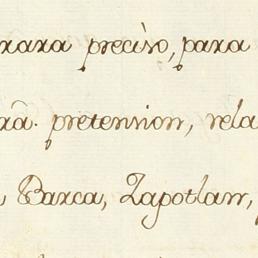 rara preciso, para
rã. pretension, rela
Barca, Zapotlan,